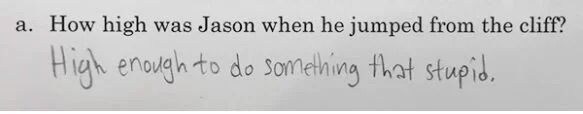 a. How high was Jason when he jumped from the cliff?
High enough to do something that stupid.